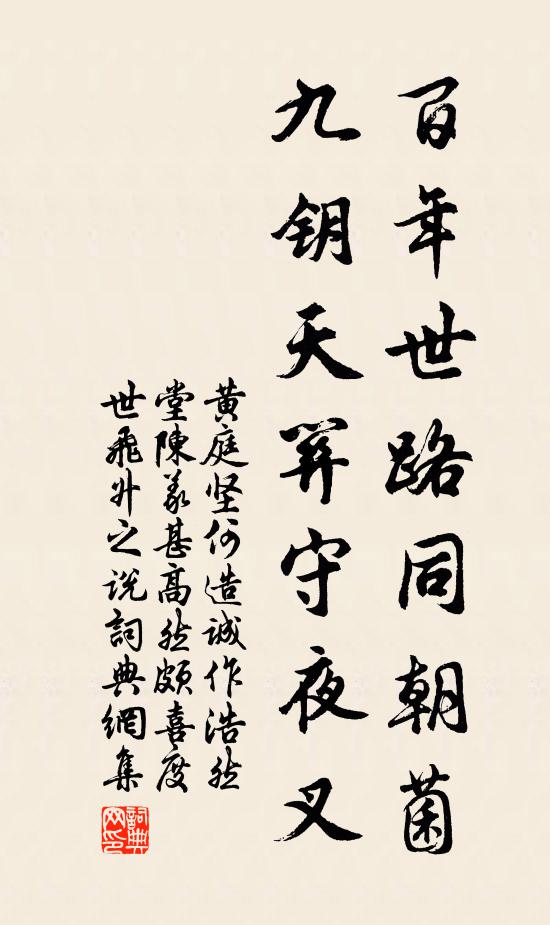 百年世路同朝菌
九钥天關守夜叉
黄庭坚何造诚作浩然
堂陳義甚高然頗喜度
世飛升之説詞典網集
詞典網印